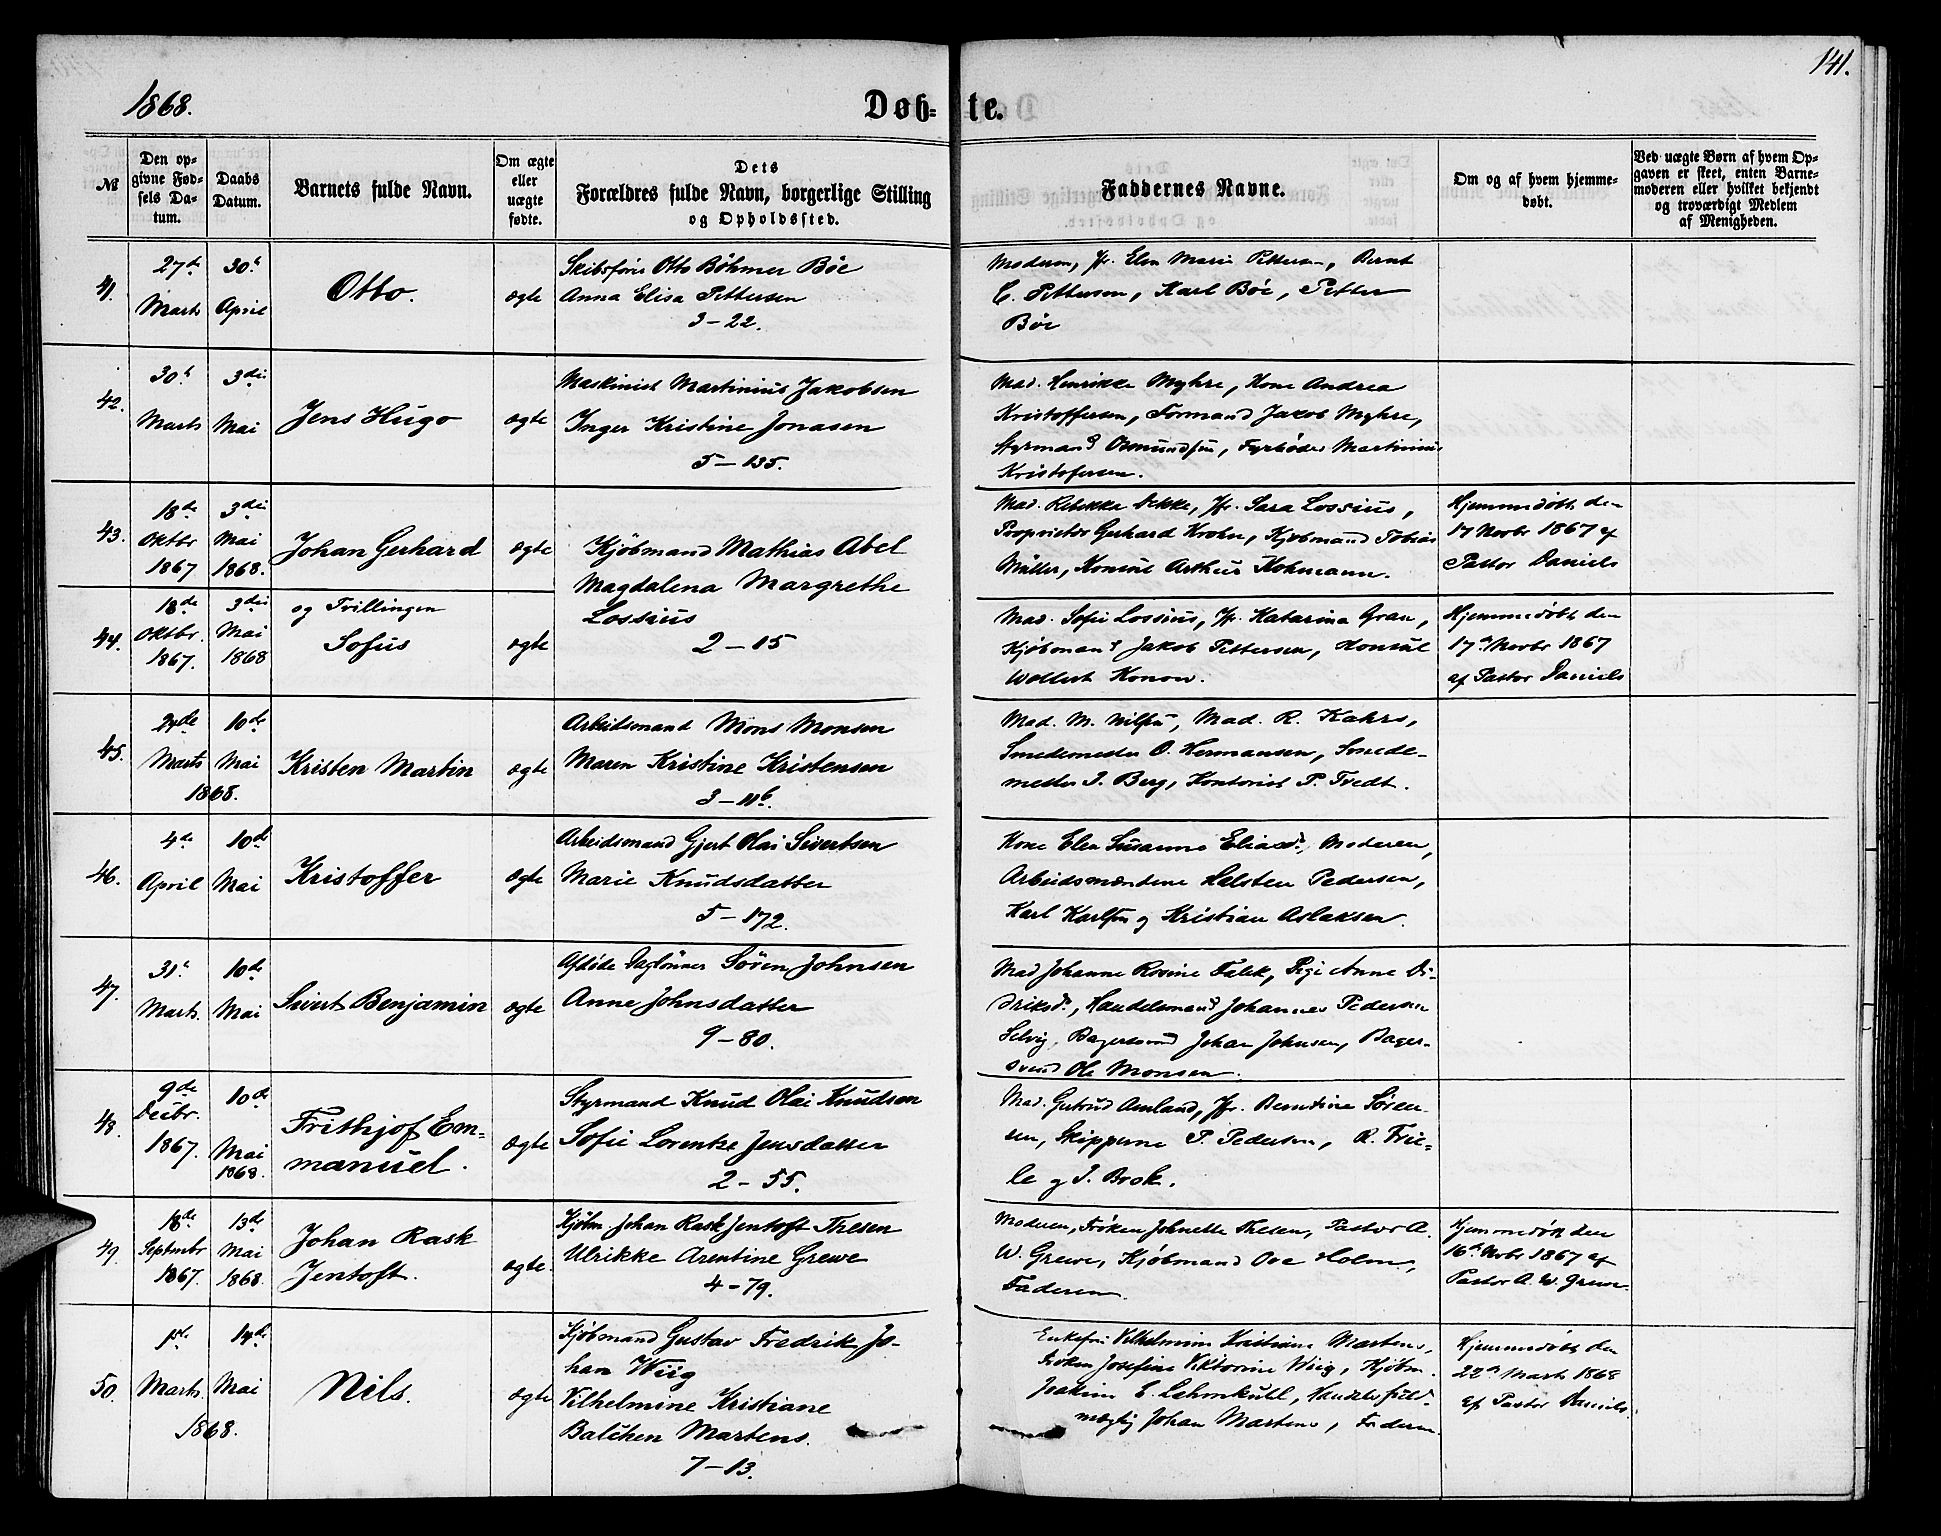 141.
1868.
Døb-te.
№
Den opgivne Fødsels Datum.
Daabs Datum.
Barnets fulde Navn.
Om ægte eller uægte fødte.
Dets Forældres fulde Navn, borgerlige Stilling og Opholdssted.
Faddernes Navne.
Om og af hvem hjemmedøbt.
Ved uægte Børn af hvem Opgaven er skeet, enten Barnemoderen eller hvilket bekjendt og troværdigt Medlem af Menigheden.
41.
27de Marts
30te April
Otto.
ægte
Skibsfører Otto Böhmer Böe
Anna Elisa Pettersen
3-22.
Moderen, Jfr. Elen Marie Pettersen, Bernt
C. Pettersen, Karl Böe, Petter
Böe
42.
30te Marts
3die Mai
Jens Hugo
ægte
Maskinist Martinius Jakobsen
Inger Kristine Jonasen
5-135.
Mad. Henrikke Myhre, Kone Andrea
Kristoffersen, Formand Jakob Myhre,
Styrmand Osmundsen, Fyrbøder Martinius
Kristofersen.
43.
18de Oktbr 1867
3die Mai 1868.
Johan Gerhard
ægte
Kjöbmand Mathias Abel
Magdalena Margrethe
Lossius
2-15
Mad. Rebekka Dekke, Jfr. Sara Lossius,
Proprietor Gerhard Krohn, Kjöbmand Tobias
Müller, Konsul Arthur Kohmann.
Hjemmedøbt den
17 Novbr 1867 af
Pastor Daniels
44.
18de Oktbr. 1867.
3die Mai 1868
og Tvillingen
Sofus
ægte
Mad. Sofie Lossius, Jfr. Katarina Gran,
Kjöbmand Jakob Pettersen, Konsul
Wollert Konow.
Hjemmedøbt den
17de Novbr 1867
af Pastor Daniels
45.
24de Marts
10de Mai
1868.
Kristen Martin
ægte
Arbeidsmand Mons Monsen
Maren Kristine Kristensen
3-11b.
Mad. M. Nilsen, Mad. R. Kahrs,
Smedemester O. Hermansen, Smede-
mester I. Berg, Kontorist P. Tvedt.
46.
4de April
10de Mai
Kristoffer
ægte
Arbeidsmand Gjert Olai Sivertsen
Marie Knudsdatter
5-172.
Kone Elen Susanne Eliasd., Moderen,
Arbeidsmændene Halsten Pedersen,
Karl Karlsen og Kristian Aslaksen.
47.
31te Marts.
10de Mai
Sivert Benjamin
ægte
Afdöde Daglönner Sören Johnsen
Anne Johnsdatter
9-80.
Mad Johanne Rosine Falck, Pige Anne Di-
driksd., Handelsmand Johannes Pedersen
Selvig, Bagersvend Johan Johnsen, Bager-
svend Ole Monsen.
48.
9de Decbr. 1867.
10de Mai 1868.
Frithjof Em-
manuel.
ægte
Styrmand Knud Olai Knudsen
Sofie Lorentze Jensdatter
2-55.
Mad. Gertrud Amland, Jfr. Berntine Sören-
sen, Skipperne P. Pedersen, R. Frie-
le og I. Brok.
49.
18de Septmbr 1867.
13de Mai 1868.
Johan Rask
Jentoft.
ægte
Kjöbm Johan Rask Jentoft Thesen
Ulrikke Arentine Grewe
4-79.
Moderen, Fröken Johnette Thesen, Pastor A.
W. Grewe, Kjöbmand Ove Holm,
Faderen.
Hjemmedøbt den
16de Novbr 1867 af
Pastor A. W. Grewe
50.
1ste Marts
14de Mai
1868.
Nils.
ægte
Kjöbmand Gustav Fredrik Jo-
han Wiig
Vilhelmine Kristiane
Balchen Martens.
7-13.
Enkefru Vilhelmine Kristiane Martens,
Fröken Josefine Viktorine Wiig, Kjöbm.
Joakim E. Lehmkuhl, Handelsfuld-
mægtig Johan Martens, Faderen
Hjemmedøbt den
22de Marts 1868
af Pastor Daniels.